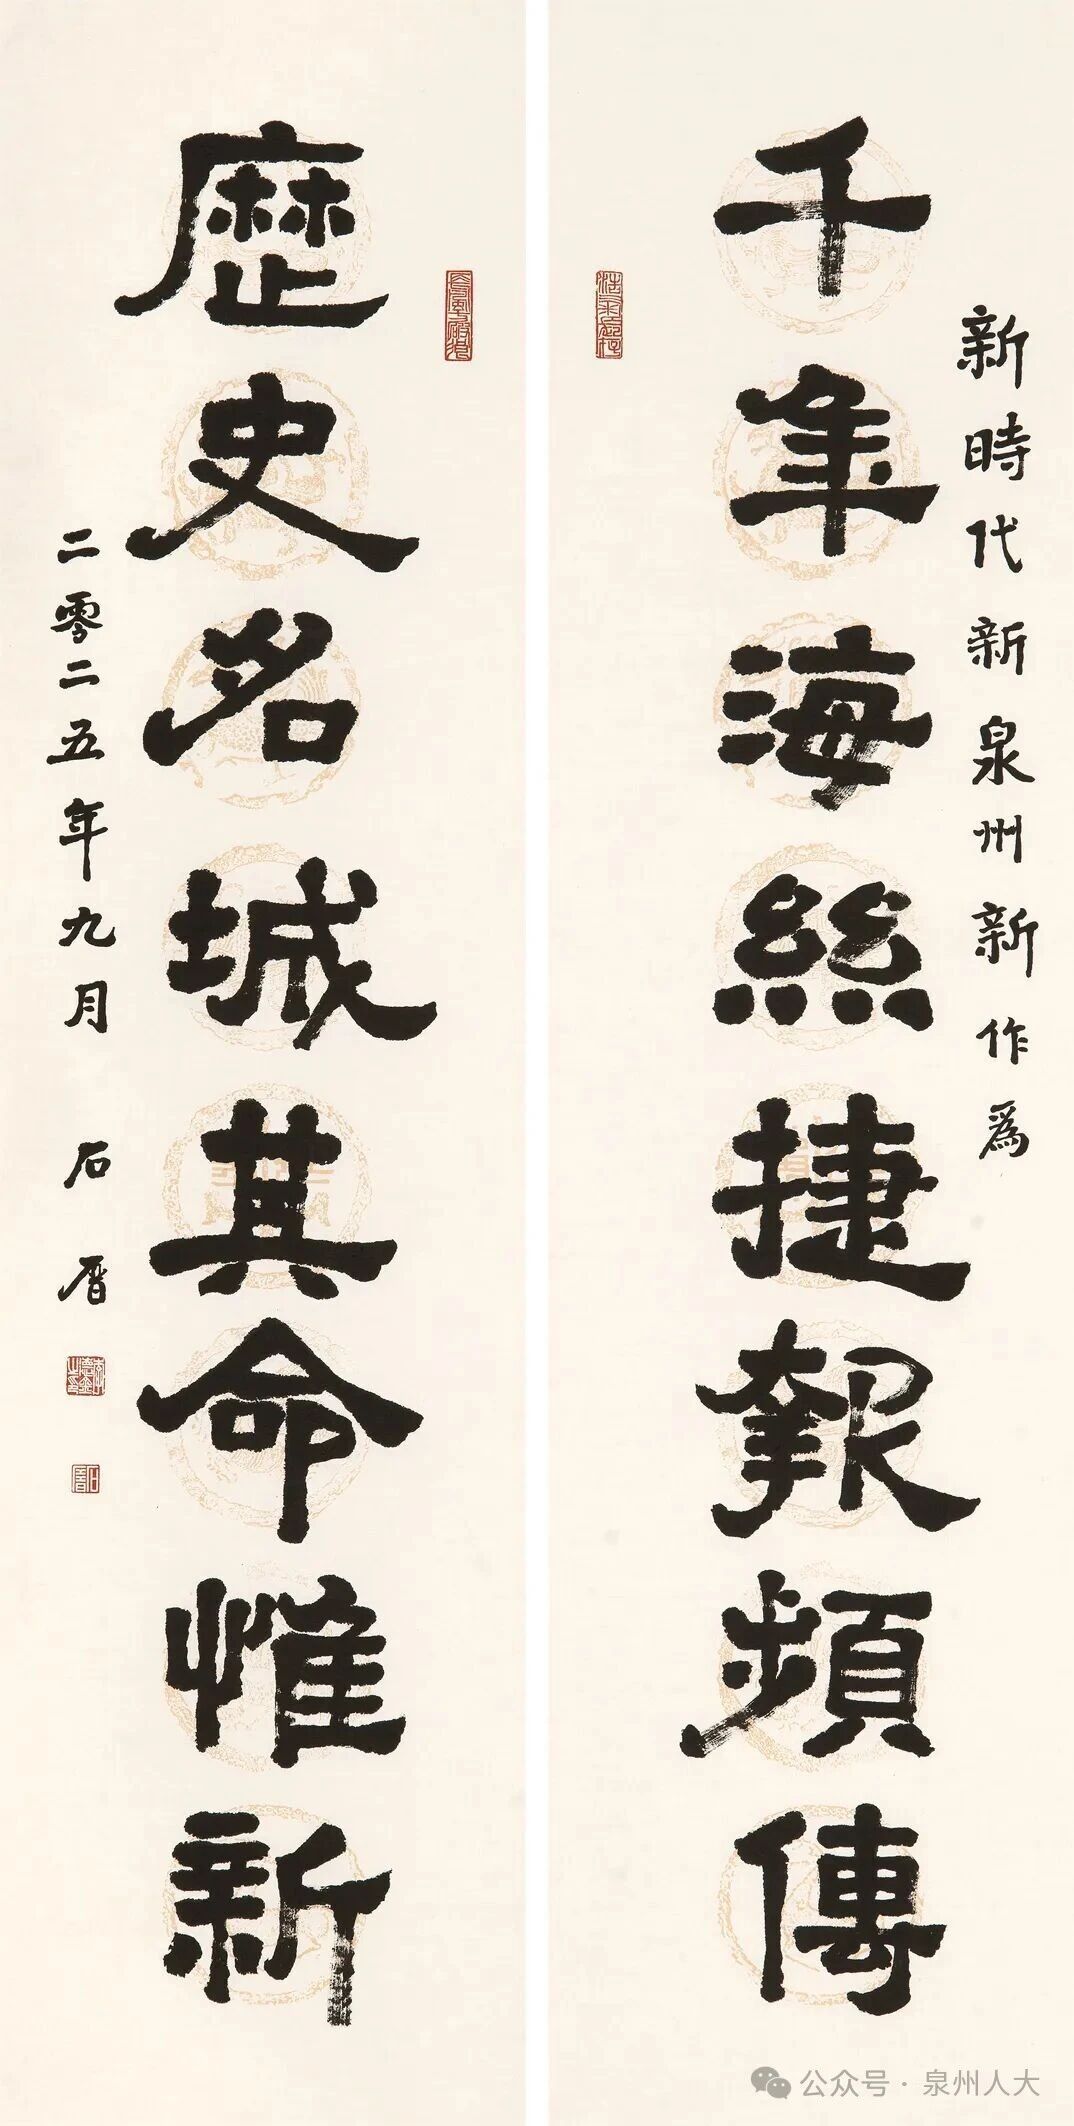 新時代新泉州新作爲
千年海絲捷報頻傳
歷史名城其命惟新
二零二五年九月 石厝
公众号·泉州人大